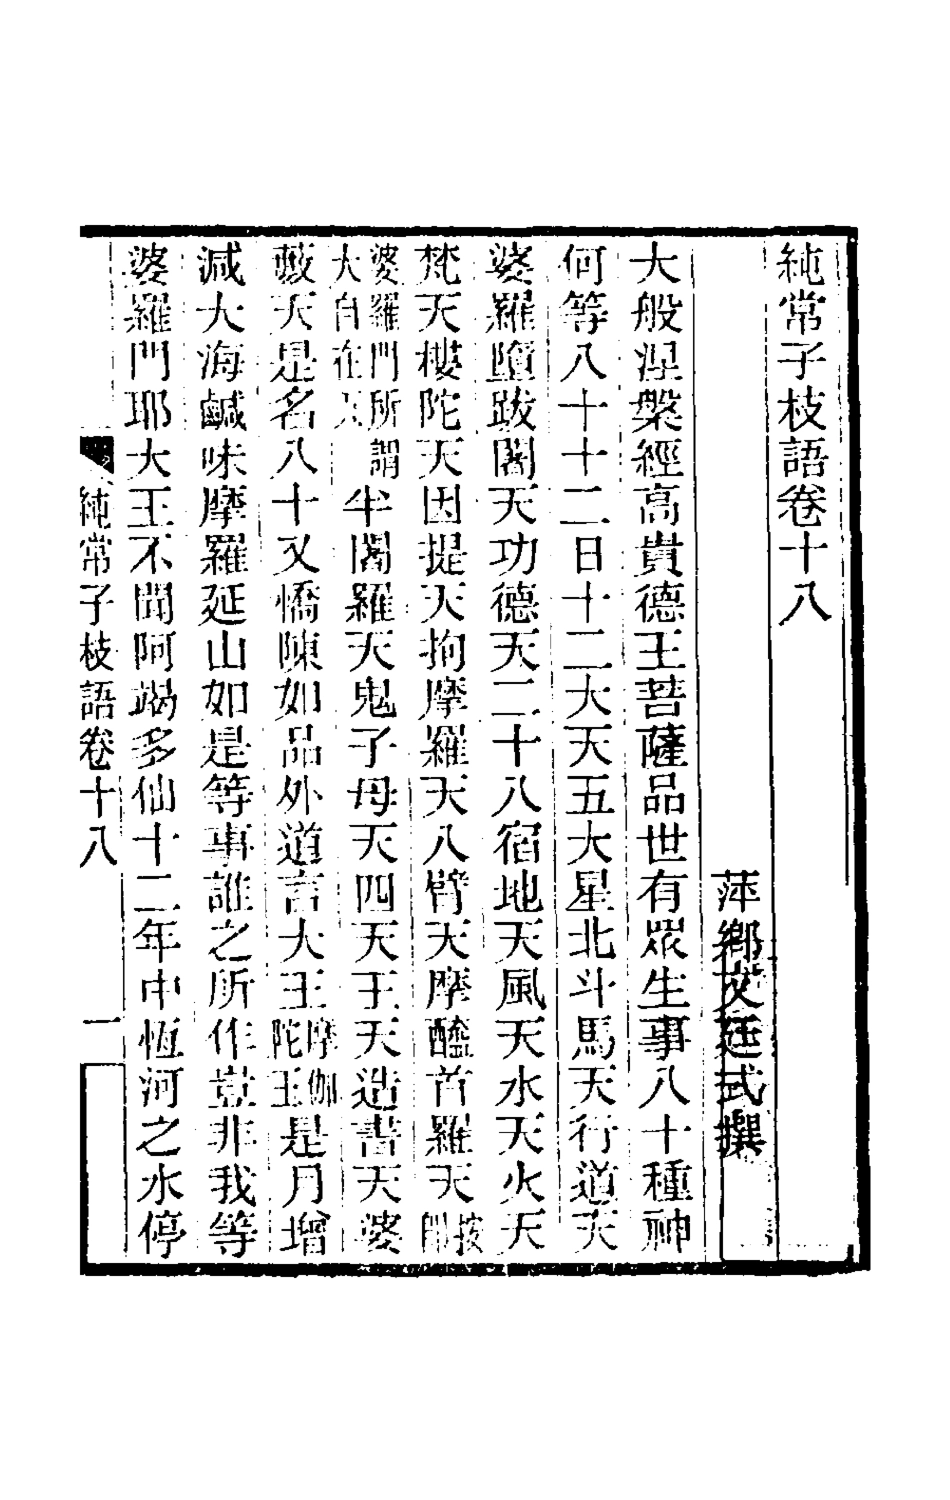 純常子枝語卷十八
萍鄉文廷式撰
大般涅槃經高貴德王菩薩品世有眾生事八十種神
何等八十十二日十二大天五大星北斗馬天行道天
婆羅墮跋闍天功德天二十八宿地天風天水天火天
梵天樓陀天因提天拘摩羅天八臂天摩醯首羅天按即
婆羅門所謂大自在天半闍羅天鬼子母天四天王天造書天婆
藪天是名八十又憍陳如品外道言大王摩伽陀王是月增
減大海鹹味摩羅延山如是等事誰之所作豈非我等
婆羅門耶大王不聞阿竭多仙十二年中恆河之水停
純常子枝語卷十八
一